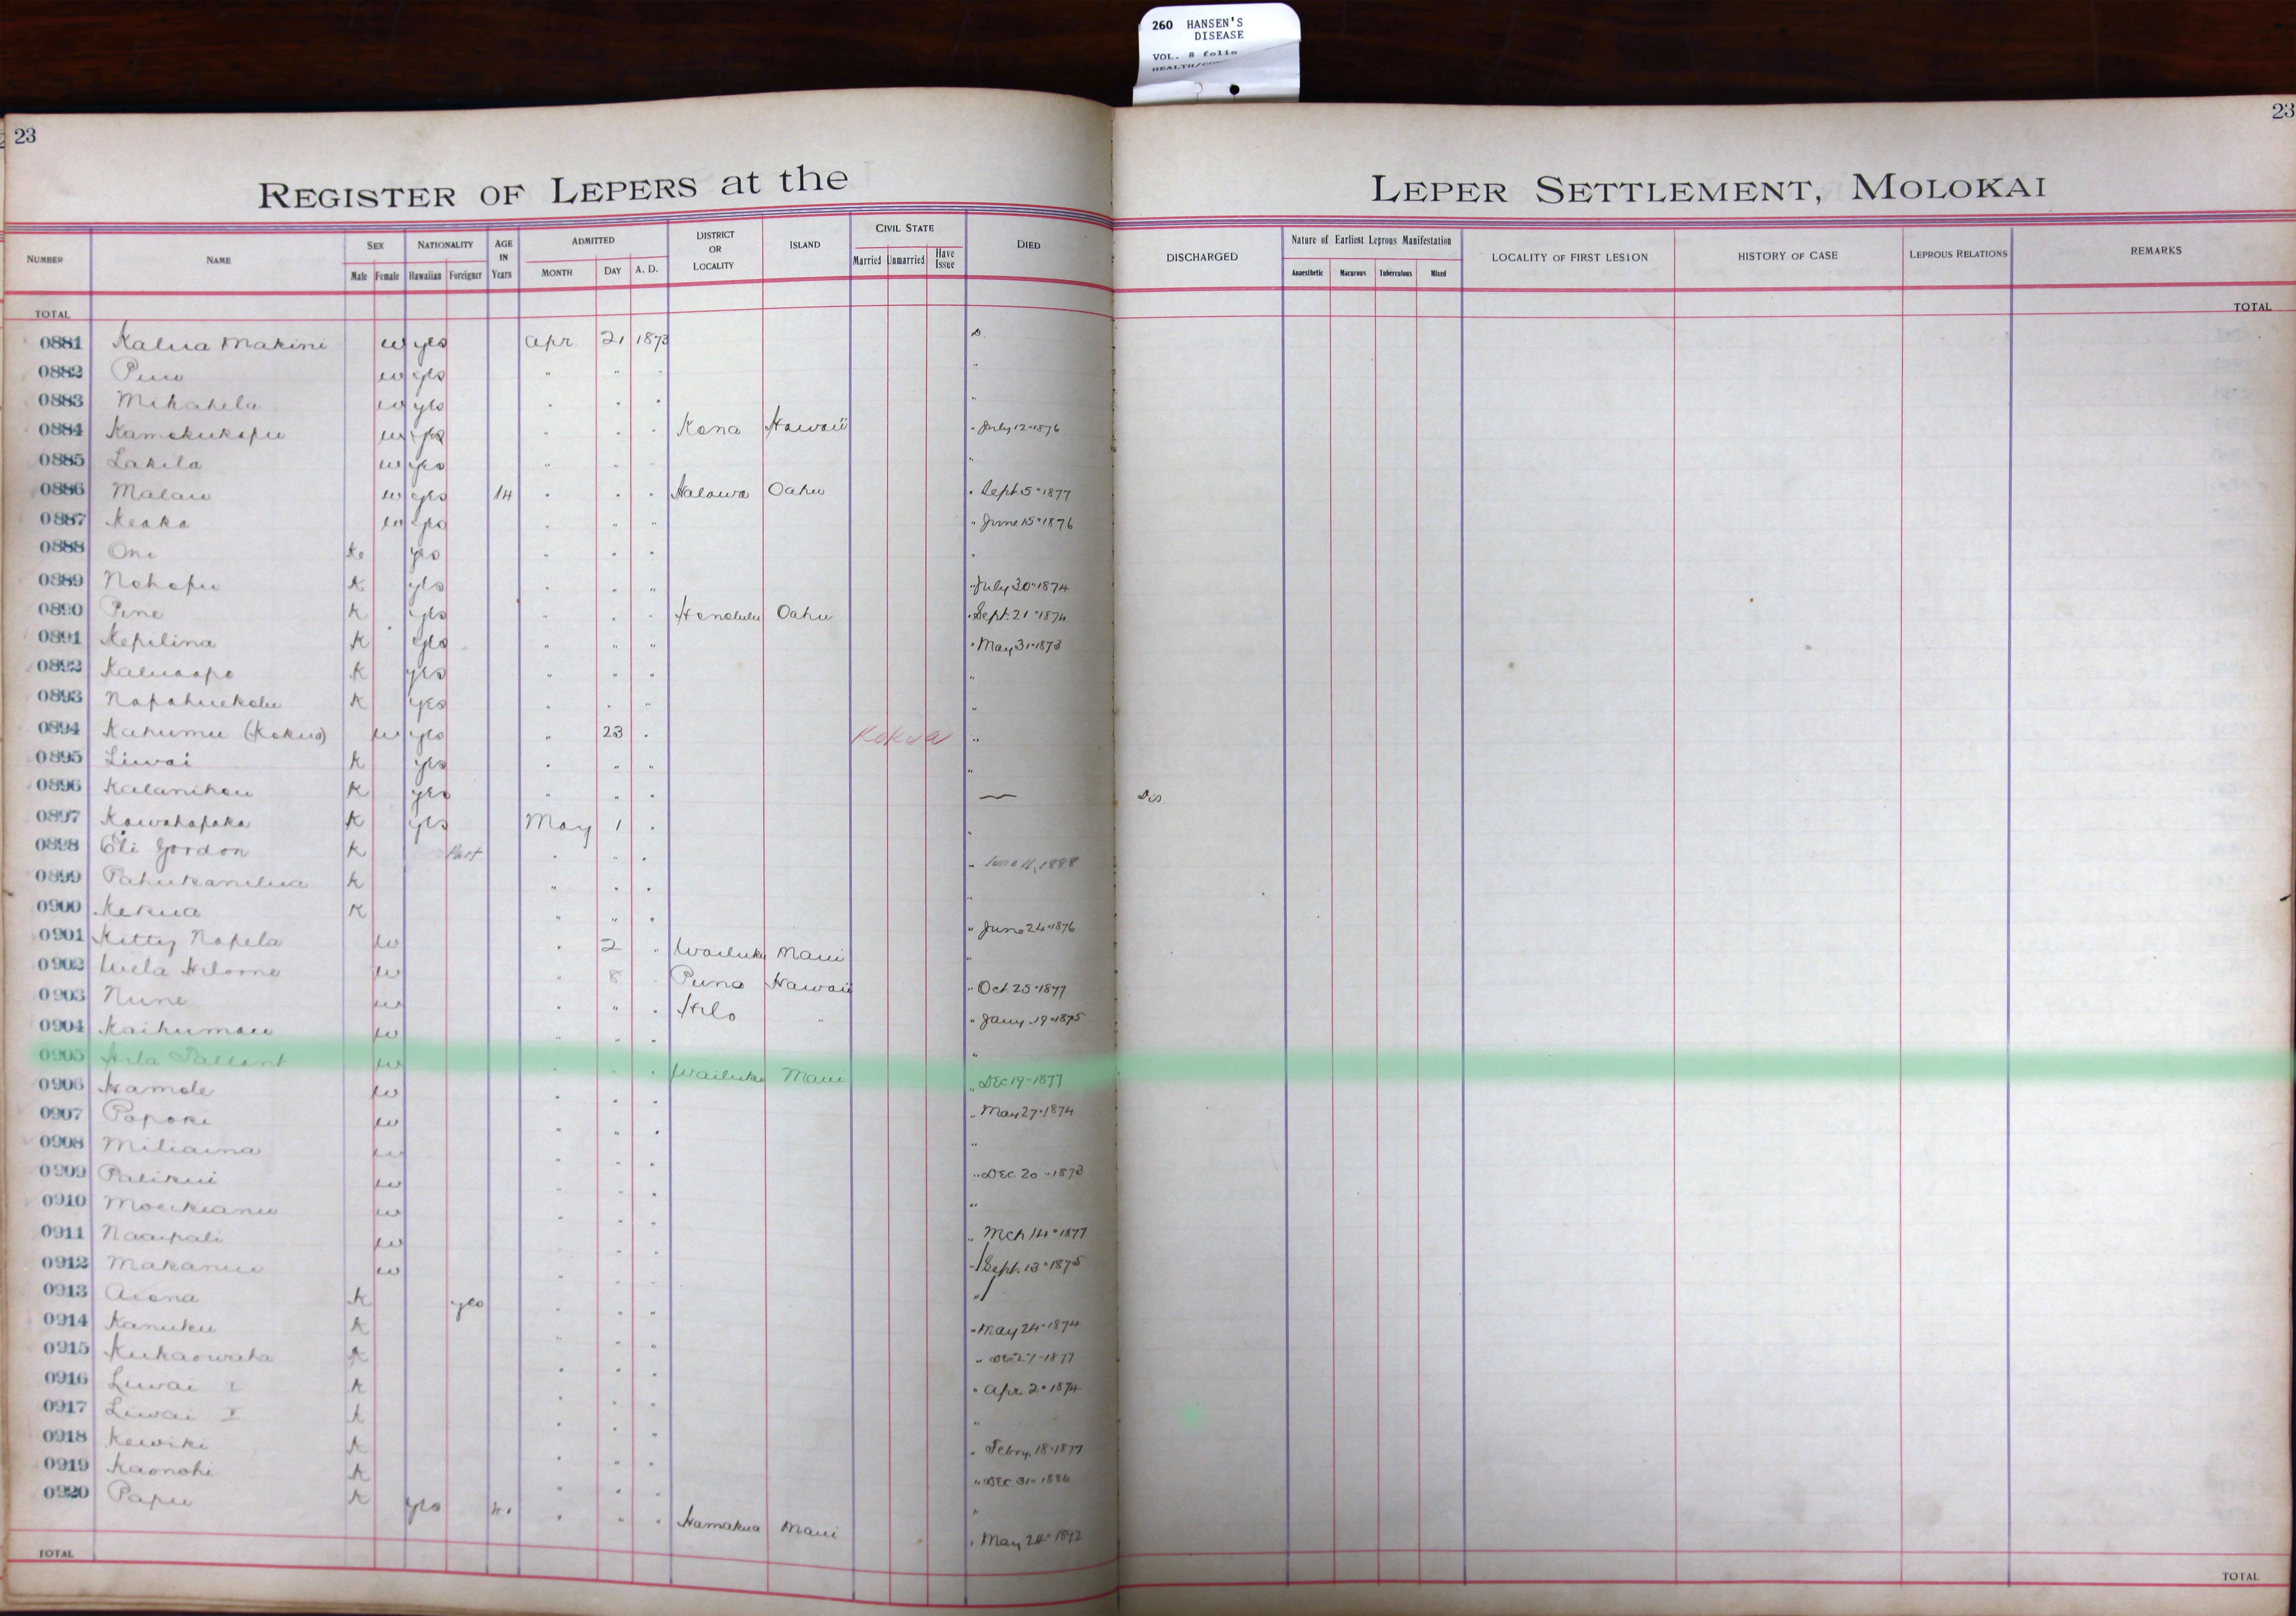 260 HANSEN'S
DISEASE
VOL. 8 folio
23
23
REGISTER OF LEPERS at the LEPER SETTLEMENT, MOLOKAI
NUMBER NAME SEX NATIONALITY AGE IN Years ADMITTED DISTRICT OR LOCALITY ISLAND CIVIL STATE DIED DISCHARGED Nature of Earliest Leprous Manifestation LOCALITY OF FIRST LESION HISTORY OF CASE LEPROUS RELATIONS REMARKS
Male Female Hawaiian Foreigner MONTH DAY A. D. Married Unmarried Have Issue Anaesthetic Macurous Tuberculous Mixed
TOTAL TOTAL
0881 Kalua Makini w yes Apr 21 1873 D.
0882 w yes " " " "
0883 Mikahela w yes " " " "
0884 Kamokukapu w yes " " " Kona Hawaii " July 12 " 1876
0885 Lakila w yes " " " "
0886 Malau w yes 14 " " " Halawa Oahu " Sept. 5 " 1877
0887 Keaka w yes " " " " June 15 " 1876
0888 Oni K yes " " " "
0889 Nohopu K yes " " " " July 30 " 1874
0890 Pine K yes " " " Honolulu Oahu " Sept. 21 " 1874
0891 Kepilina K yes " " " " May 31 " 1873
0892 Kaluaopo K yes " " " "
0893 Napahuekolu K yes " " " "
0894 Kahumu (Kokua) w yes " 23 " Kokua "
0895 Liwai K yes " " " "
0896 Kalanihou K yes " " " — Dis
0897 Kawahapaka K yes May 1 " "
0898 Eli Gordon K Part " " " " June 11, 1888
0899 Pahukanilua K " " " "
0900 Kekua K " " " " June 24 " 1876
0901 Kitty Napela w " 2 " Wailuku Maui "
0902 w " 8 " Puna Hawaii " Oct. 25 " 1877
0903 Nune w " " " Hilo " " Jany. 19 " 1875
0904 Kaihumau w " " " "
0905 w " " " Wailuku Maui " Dec 19 - 1877
0906 Hamole w " " " " May 27 " 1874
0907 Papoki w " " " "
0908 Miliaina w " " " " Dec. 20 " 1873
0909 Palikui w " " " "
0910 w " " " " Mch 14 " 1877
0911 Naaipali w " " " " Sept. 13 " 1875
0912 Makanui w " " " "
0913 Aiona K yes " " " " May 24 " 1874
0914 Kanuku K " " " " Dec 27 - 1877
0915 Kukaowaha K " " " " Apr. 2 " 1874
0916 Liwai I K " " " "
0917 Liwai K " " " " Febry. 18 " 1877
0918 Kewiki K " " " " Dec. 31 " 1886
0919 Kaonohi K " " " "
0920 Papu K yes " " " Hamakua Maui " May 24 " 1892
TOTAL TOTAL